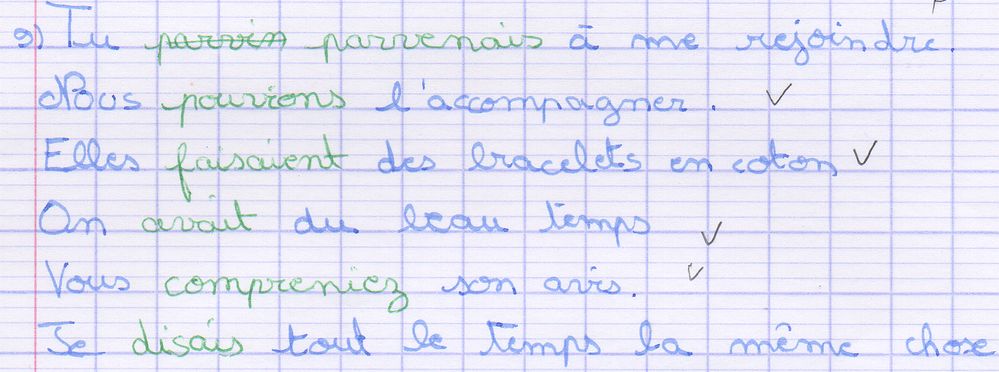 9) Tu parvin parvenais à me rejoindre.
Nous pouvions l'accompagner.
Elles faisaient des bracelets en coton
On avait du beau temps
Vous compreniez son avis.
Je disais tout le temps la même chose